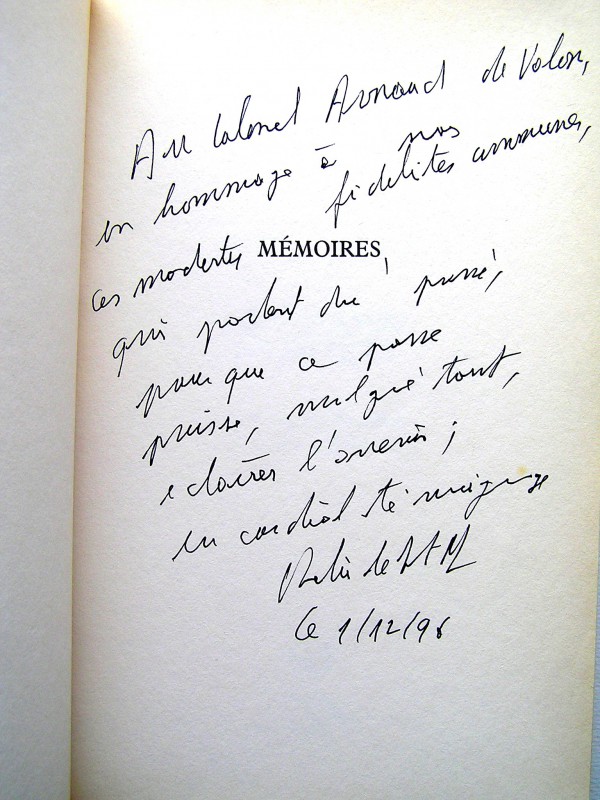 Au Colonel Arnaud de Valon,
en hommage à nos
fidelités communes,
ces modestes MÉMOIRES,
qui parlent du passé,
pour que ce passé
puisse, malgré tout,
eclairer l'avenir ;
en cordial témoignage
Hélie de St M
le 1/12/96